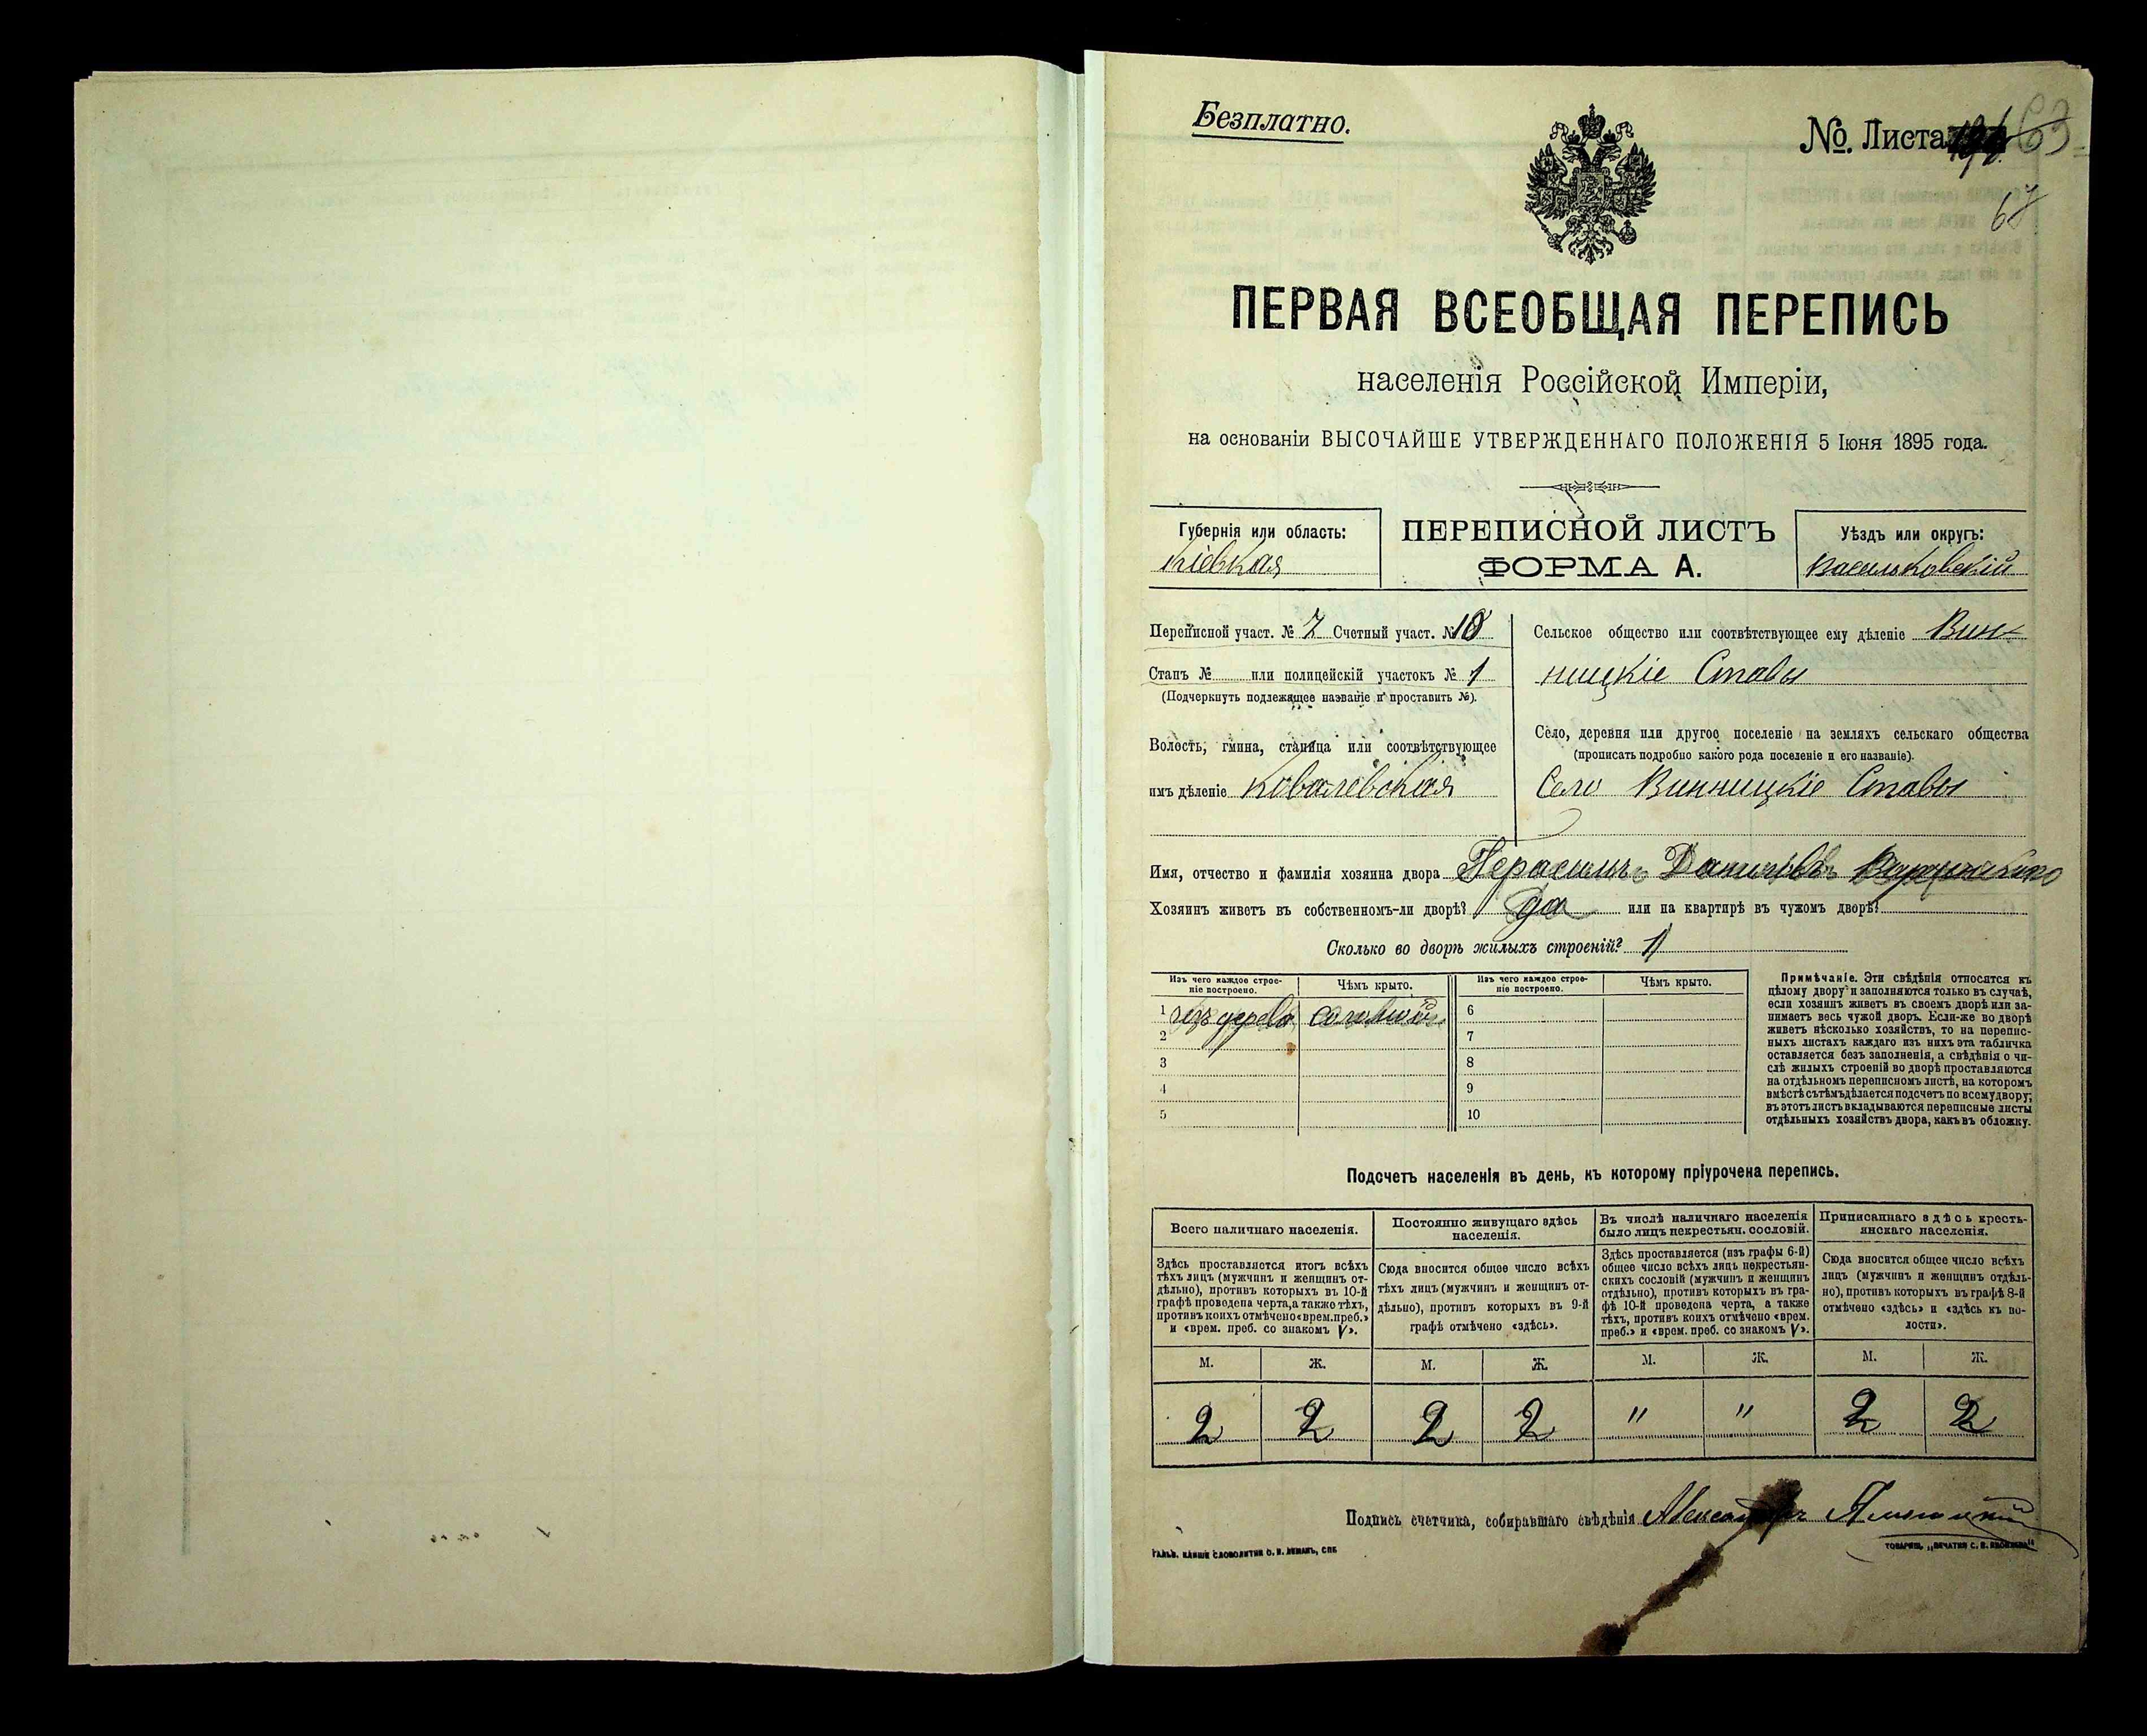 Безплатно.
№. Листа
63
67
ПЕРВАЯ ВСЕОБЩАЯ ПЕРЕПИСЬ
населенія Россійской Имперіи,
на основаніи ВЫСОЧАЙШЕ УТВЕРЖДЕННАГО ПОЛОЖЕНІЯ 5 Іюня 1895 года.
Губернія или область:
Кіевкая
ПЕРЕПИСНОЙ ЛИСТЪ
ФОРМА А.
Уѣздъ или округъ:
Васильковскій
Переписной участ. № 7 Счетный участ. № 10
Станъ № или полицейскій участокъ № 1
(Подчеркнуть подлежащее названіе и проставить №).
Волость, гмина, станица или соотвѣтствующее
имъ дѣленіе Ковалевская
Сельское общество или соотвѣтствующее ему дѣленіе Вин-
ницкіе Ставы
Село, деревня или другое поселеніе на земляхъ сельскаго общества
(прописать подробно какого рода поселеніе и его названіе).
Село Винницкіе Ставы
Имя, отчество и фамилія хозяина двора Герасимъ Даниловъ
Хозяинъ живетъ въ собственномъ-ли дворѣ? да или на квартирѣ въ чужомъ дворѣ?
Сколько во дворѣ жилыхъ строеній? 1
Изъ чего каждое строе-
ніе построено.
Чѣмъ крыто.
Изъ чего каждое строе-
ніе построено.
Чѣмъ крыто.
1 изъ дерева соломой 6
2 7
3 8
4 9
5 10
Примѣчаніе. Эти свѣдѣнія относятся къ
цѣлому двору и заполняются только въ случаѣ,
если хозяинъ живетъ въ своемъ дворѣ или за-
нимаетъ весь чужой дворъ. Если-же во дворѣ
живетъ нѣсколько хозяйствъ, то на перепис-
ныхъ листахъ каждаго изъ нихъ эта табличка
оставляется безъ заполненія, а свѣдѣнія о чи-
слѣ жилыхъ строеній во дворѣ проставляются
на отдѣльномъ переписномъ листѣ, на которомъ
вмѣстѣ съ тѣмъ дѣлается подсчетъ по всему двору;
въ этотъ листъ вкладываются переписные листы
отдѣльныхъ хозяйствъ двора, какъ въ обложку.
Подсчетъ населенія въ день, къ которому пріурочена перепись.
Всего наличнаго населенія.
Здѣсь проставляется итогъ всѣхъ
тѣхъ лицъ (мужчинъ и женщинъ от-
дѣльно), противъ которыхъ въ 10-й
графѣ проведена черта, а также тѣхъ,
противъ коихъ отмѣчено «врем. преб.»
и «врем. преб. со знакомъ V».
Постоянно живущаго здѣсь
населенія.
Сюда вносится общее число всѣхъ
тѣхъ лицъ (мужчинъ и женщинъ от-
дѣльно), противъ которыхъ въ 9-й
графѣ отмѣчено «здѣсь».
Въ числѣ наличнаго населенія
было лицъ некрестьян. сословій.
Здѣсь проставляется (изъ графы 6-й)
общее число всѣхъ лицъ некрестьян-
скихъ сословій (мужчинъ и женщинъ
отдѣльно), противъ которыхъ въ гра-
фѣ 10-й проведена черта, а также
тѣхъ, противъ коихъ отмѣчено «врем.
преб.» и «врем. преб. со знакомъ V».
Приписаннаго здѣсь кресть-
янскаго населенія.
Сюда вносится общее число всѣхъ
лицъ (мужчинъ и женщинъ отдѣль-
но), противъ которыхъ въ графѣ 8-й
отмѣчено «здѣсь» и «здѣсь къ во-
лости».
М. Ж. М. Ж. М. Ж. М. Ж.
2 2 2 2 " " 2 2
Подпись счетчика, собиравшаго свѣдѣнія Александръ
ГАЛЬВ. КЛИШЕ СЛОВОЛИТНИ О. И. ЛЕМАНЪ, СПБ
ТОВАРИЩ. „ПЕЧАТНЯ С. П. ЯКОВЛЕВА"